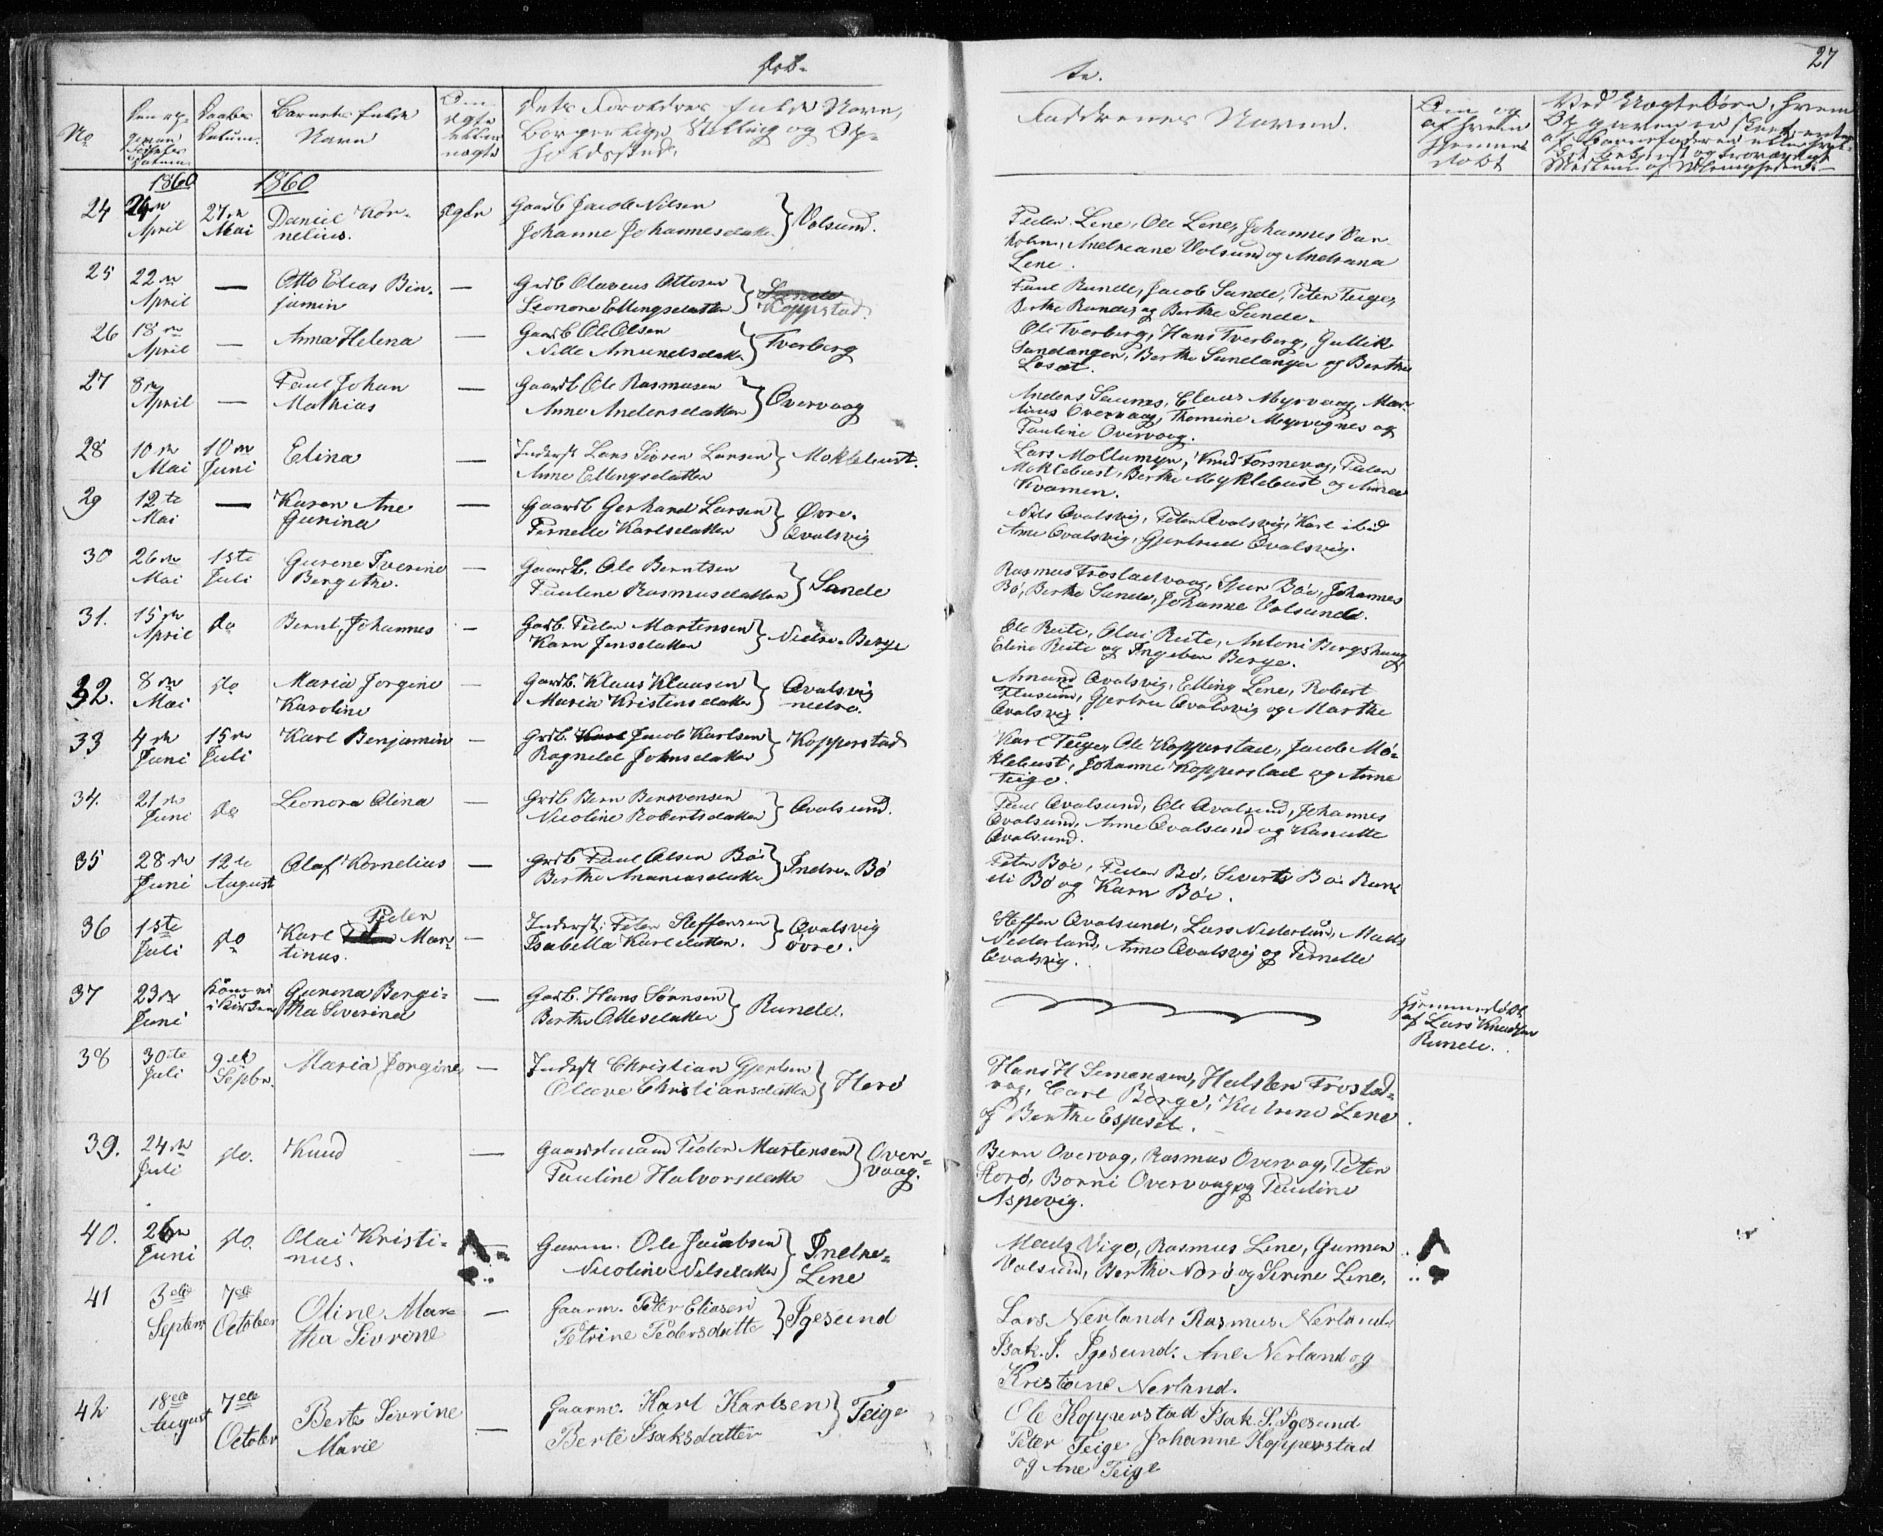 Føb-
te.
27
No
Barnets fulde
Navn
Forældres fulde Navn,
Borgerlige Stilling og Op-
holdssted.
Faddrenes Navne.
1860
1860
24
April
27de
Mai
Daniel Kor-
nelius.
ægte
Gaardb Jacob Nilsen
Johanne Johannesdatter
Volsund.
Peder Lene, Ole Lene, Johannes Var
holm, Andreane Volsund og Andreana
Lene.
25
22de
April
—
Otto Elias Ben-
jamin
—
Grdb Olavus Ottosen
Leonore Ellingsdatter
Kopperstad.
Paul Runde, Jacob Sande, Peter Teige,
Berthe Runde og Berthe Sande.
26
18de
April
—
Anna Helena
—
Gaardb Ole Olsen
Nille Amundsdatter
Tverberg
Ole Tverberg, Hans Tverberg, Gullik
Sandanger, Berthe Sandanger og Berthe
Løset.
27
8de
April
—
Paul Johan
Mathias
—
Gaardb Ole Rasmusen
Anne Andersdatter
Overvaag
Anders Saunes, Claus Myrvaag, Mar-
tinus Overvaag, Thomine Myrvognes og
Pauline Overvaag.
28
10de
Mai
10de
Juni
Elina
—
Inderst Lars Siversen Larsen
Anne Ellingsdatter
Moklebust.
Lars Mollumyr, Knud Forsnevag, Peder
Moklebust, Berthe Myklebust og Anne
Kvamen.
29
12te
Mai
—
Karen Ane
Gurina
—
Gaardb Gerhard Larsen
Pernelle Karlsdatter
Øvre-
Qvalsvig
Nils Qvalsvig, Peter Qvalsvig, Karl ibid
Anne Qvalsvig, Gjertrud Qvalsvig.
30
26de
Mai
1ste
Juli
Gurene Iverine
Bergithe.
—
Gaardb. Ole Berntsen
Pauline Rasmusdatter
Sande
Rasmus Frostadvaag, Sjur Bøe, Johannes
Bø, Berthe Sande, Johanne Volsund.
31.
15de
April
do
Bernt Johannes
—
Gaardb. Peder Martensen
Karn Jensdatter
Nedre-Berge
Ole Reite, Olai Reite, Antoni Bergshaug,
Eline Reite og Ingeborg Berge.
32.
8de
Mai
do
Maria Jorgine
Karoline
—
Gaardb. Klaus Klausen
Maria Kristensdatter
Qvalsvig
nedre.
Amund Qvalsvig, Elling Lene, Robert
Flusund, Gjertru Qvalsvig og Marthe
Qvalsvig.
33
4de
Juni
15de
Juli
Karl Benjamin
—
Grdb. Karl Jacob Karlsen
Ragnild Johnsdatter
Kopperstad
Karl Teige, Ole Kopperstad, Jacob Mø-
klebust, Johanne Kopperstad og Anne
Teige.
34.
21de
Juni
do
Leonora Olina
—
Grdb Bern Bernvensen
Nicoline Robertsdatter
Qvalsund.
Paul Qvalsund, Ole Qvalsund, Johannes
Qvalsund, Anne Qvalsund og Kanutte
Qvalsund.
35
28de
Juni
12te
August
Olaf Kornelius
—
Grdb Paul Olsen Bøe
Berthe Ananiasdatter
Indre-Bø
Peter Bøe, Peder Bø, Siverts Bøe Rune
di Bø og Karn Bøe.
36
1ste
Juli
do
Peder
Karl Mar-
tinus.
—
Inderst: Peter Steffensen
Isabella Karlsdatter.
Qvalsvig
øvre.
Steffen Qvalsund, Lars Nederland, Mads
Nederland, Anne Qvalsvig og Pernelle
Qvalsvig.
37
23de
Juni
i Kirken
Gurina Bergi-
tha Siverina
—
Gaardb. Hans Sørnsen
Berthe Ottesdatter
Runde.
Hjemmedøbt
af Lars Knudsen
Runde.
38
30te
Juli
9de
Septbr.
Maria Jorgine
—
Inderst Christian Gjertsen
Oleve Christiansdatter
Herø
Hans H Simonsen, Halsten Frostad-
vag, Carl Berge, Katrine Lene
og Berthe Espeset.
39.
24de
Juli
do.
Knud
—
Gaardmand Peder Martensen
Pauline Halvorsdatter
Over-
vaag.
Bern Overvag, Rasmus Overvag, Peter
Storø, Borni Overvaag og Pauline
Aspevig.
40.
26de
Juni
do.
Olai Kristi-
nus.
Gaarm. Ole Jacobsen
Nicoline Nilsdatter
Indre-
Lene
Mads Vige, Rasmus Lene, Gunner
Volsund, Berthe Nørø og Sirine Lene.
41
3die
Septem
7de
October
Oline Mar-
tha Sivrine
—
Gaarm. Peter Eliasen
Petrine Pedersdatte
Igesund
Lars Nerland, Rasmus Nerland.
Isak. I. Igesund. Ane Nerland og
Kristiane Nerland.
42
18de
August
7de
October
Berte Sivrine
Marie
—
Gaarm. Karl Karlsen
Berte Isaksdatter
Teige
Ole Kopperstad Isak. I. Igesund
Peter Teige Johanne Kopperstad
og Ane Teige